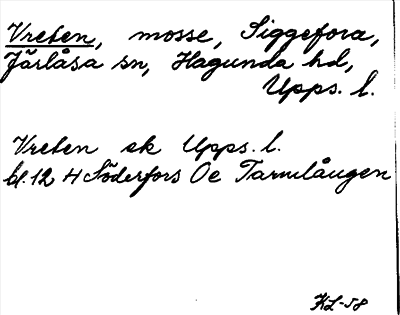 Vreten, mosse, Siggefora,
Järlåsa sn, Hagunda hd,
Upps. l.
Vreten ek Upps. l.
bl. 12 H Söderfors Oe Tarmlången
KL-58